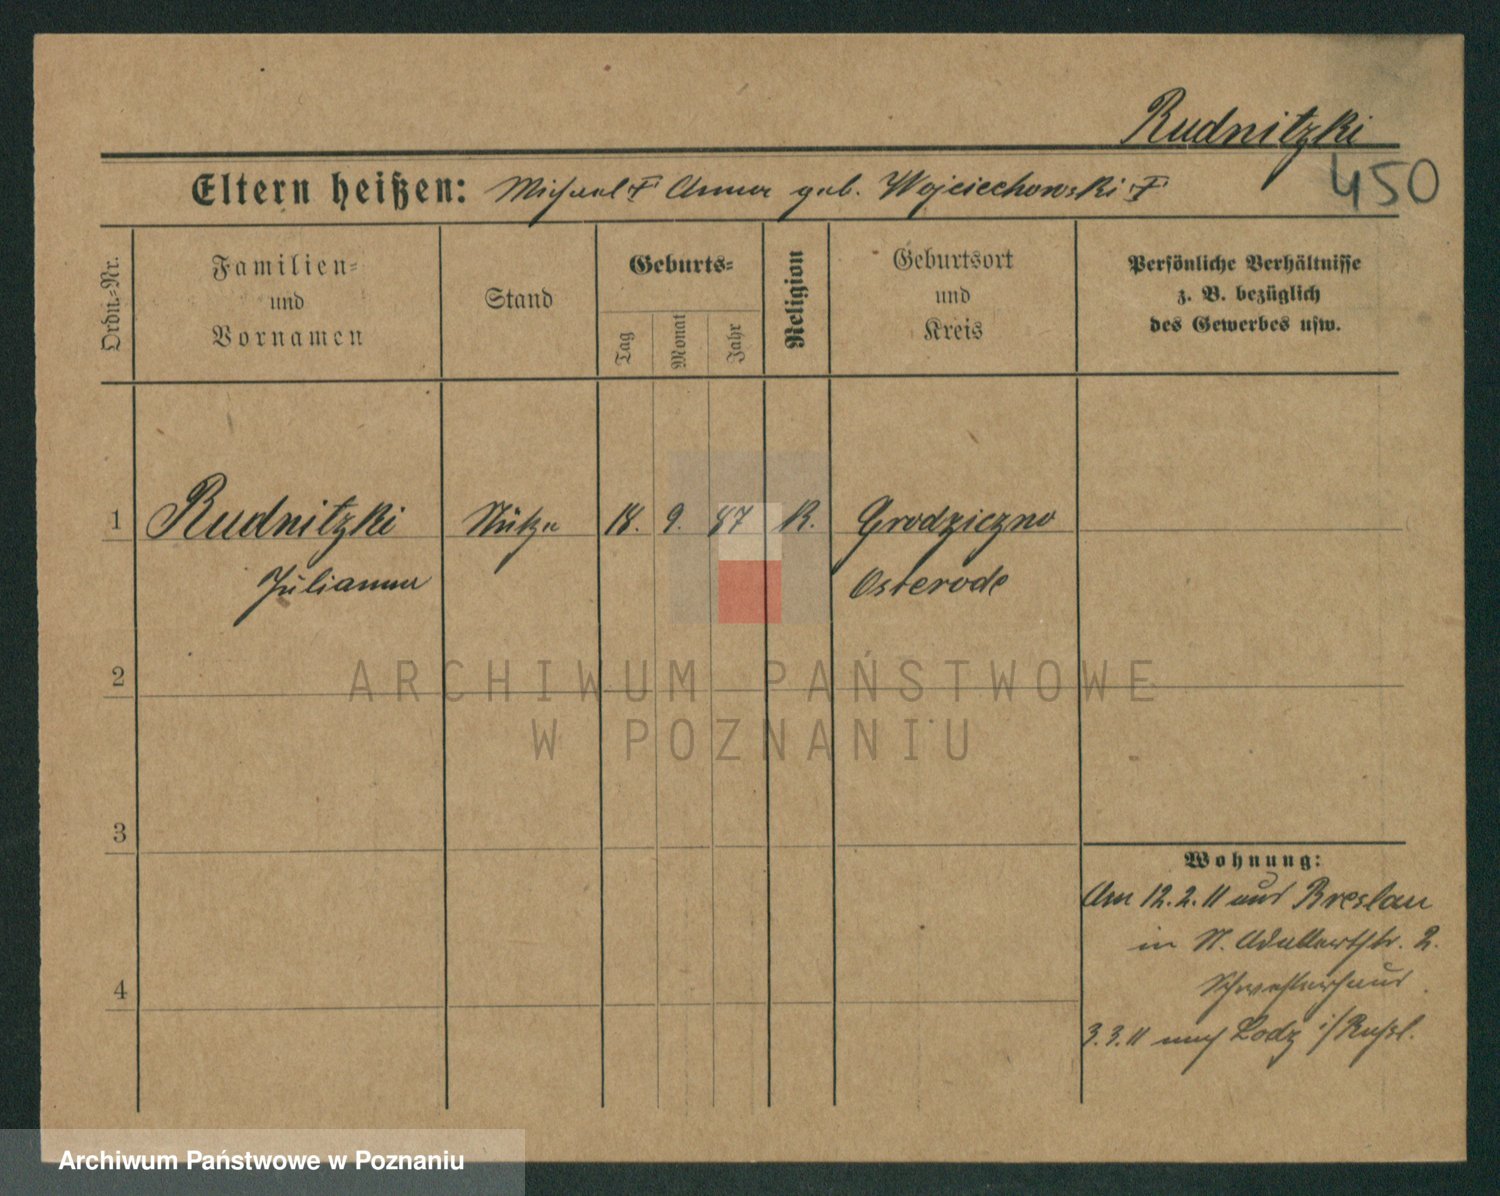 Rudnitzki
450
Eltern heißen: Michael † Anna geb. Wojciechowski †
Ordn.-Nr.
Familien-
und
Vornamen
Stand
Geburts-
Tag
Monat
Jahr
Religion
Geburtsort
und
Kreis
Persönliche Verhältnisse
z. B. bezüglich
des Gewerbes usw.
1 Rudnitzki Stütze 18. 9. 87 K. Grodziczno
Julianna Osterode
2
ARCHIWUM PAŃSTWOWE
W POZNANIU
3
Wohnung:
Am 12.2.11 aus Breslau
in St. Adalbertstr. 2.
4
Schwesternhaus
3.3.11 nach Lodz i/Russl.
Archiwum Państwowe w Poznaniu